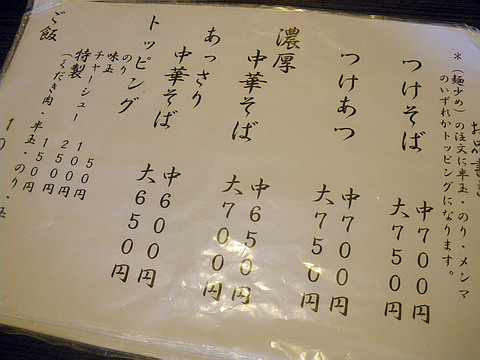 お品書き
＊（麺少め）の注文に半玉・のり・メンマ
のいずれかトッピングになります。
つけそば
中７００円
大７５０円
つけあつ
中７００円
大７５０円
濃厚
中華そば
中６５０円
大７００円
あっさり
中華そば
中６００円
大６５０円
トッピング
のり ５０円
味玉 １００円
チャーシュー ２５０円
特製 １５０円
（くだき肉・半玉・のり・玉
ご飯